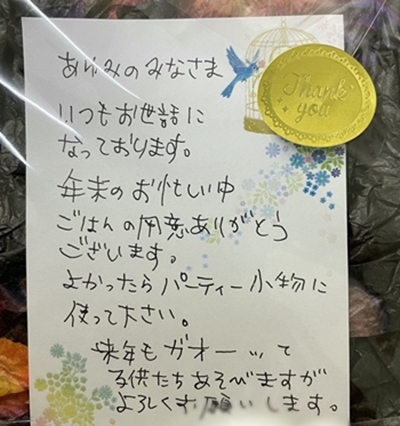 あゆみのみなさま
Thank
you
いつもお世話に
なっております。
年末のお忙しい中
ごはんの用意ありがとう
ございます。
よかったらパーティー小物に
使って下さい。
来年もガオーッて
子供たちあそびますが
よろしくお願いします。